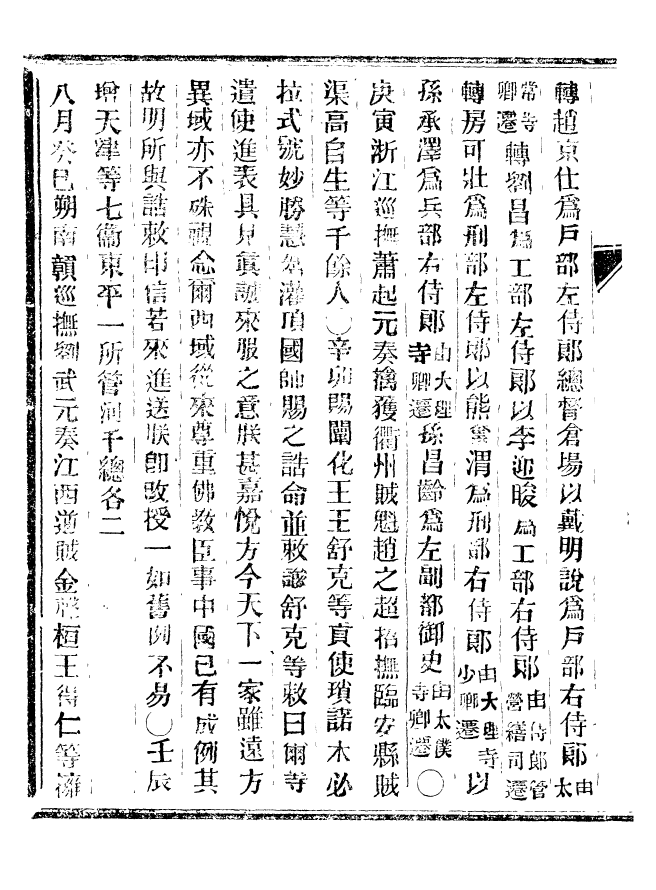 轉趙京仕爲戶部左侍郎總督倉場以戴明說爲戶部右侍郎由太
常寺卿遷轉劉昌爲工部左侍郎以李迎晙爲工部右侍郎由侍郎管營繕司遷
轉房可壯爲刑部左侍郎以熊奮渭爲刑部右侍郎由大理寺少卿遷以
孫承澤爲兵部右侍郎由大理寺卿遷孫昌齡爲左副都御史由太僕寺卿遷〇
庚寅浙江巡撫蕭起元奏擒獲衢州賊魁趙之超招撫臨安縣賊
渠高自生等千餘人〇辛卯賜闡化王王舒克等貢使瑣諾木必
拉式號妙勝慧智灌頂國師賜之誥命並敕諭舒克等敕曰爾等
遣使進表具見眞誠來服之意朕甚嘉悅方今天下一家雖遠方
異域亦不殊視念爾西域從來尊重佛教臣事中國已有成例其
故明所與誥敕印信若來進送朕卽改授一如舊例不易〇壬辰
增天津等七衞東平一所管河千總各二
八月癸巳朔南贛巡撫劉武元奏江西逆賊金聲桓王得仁等擁